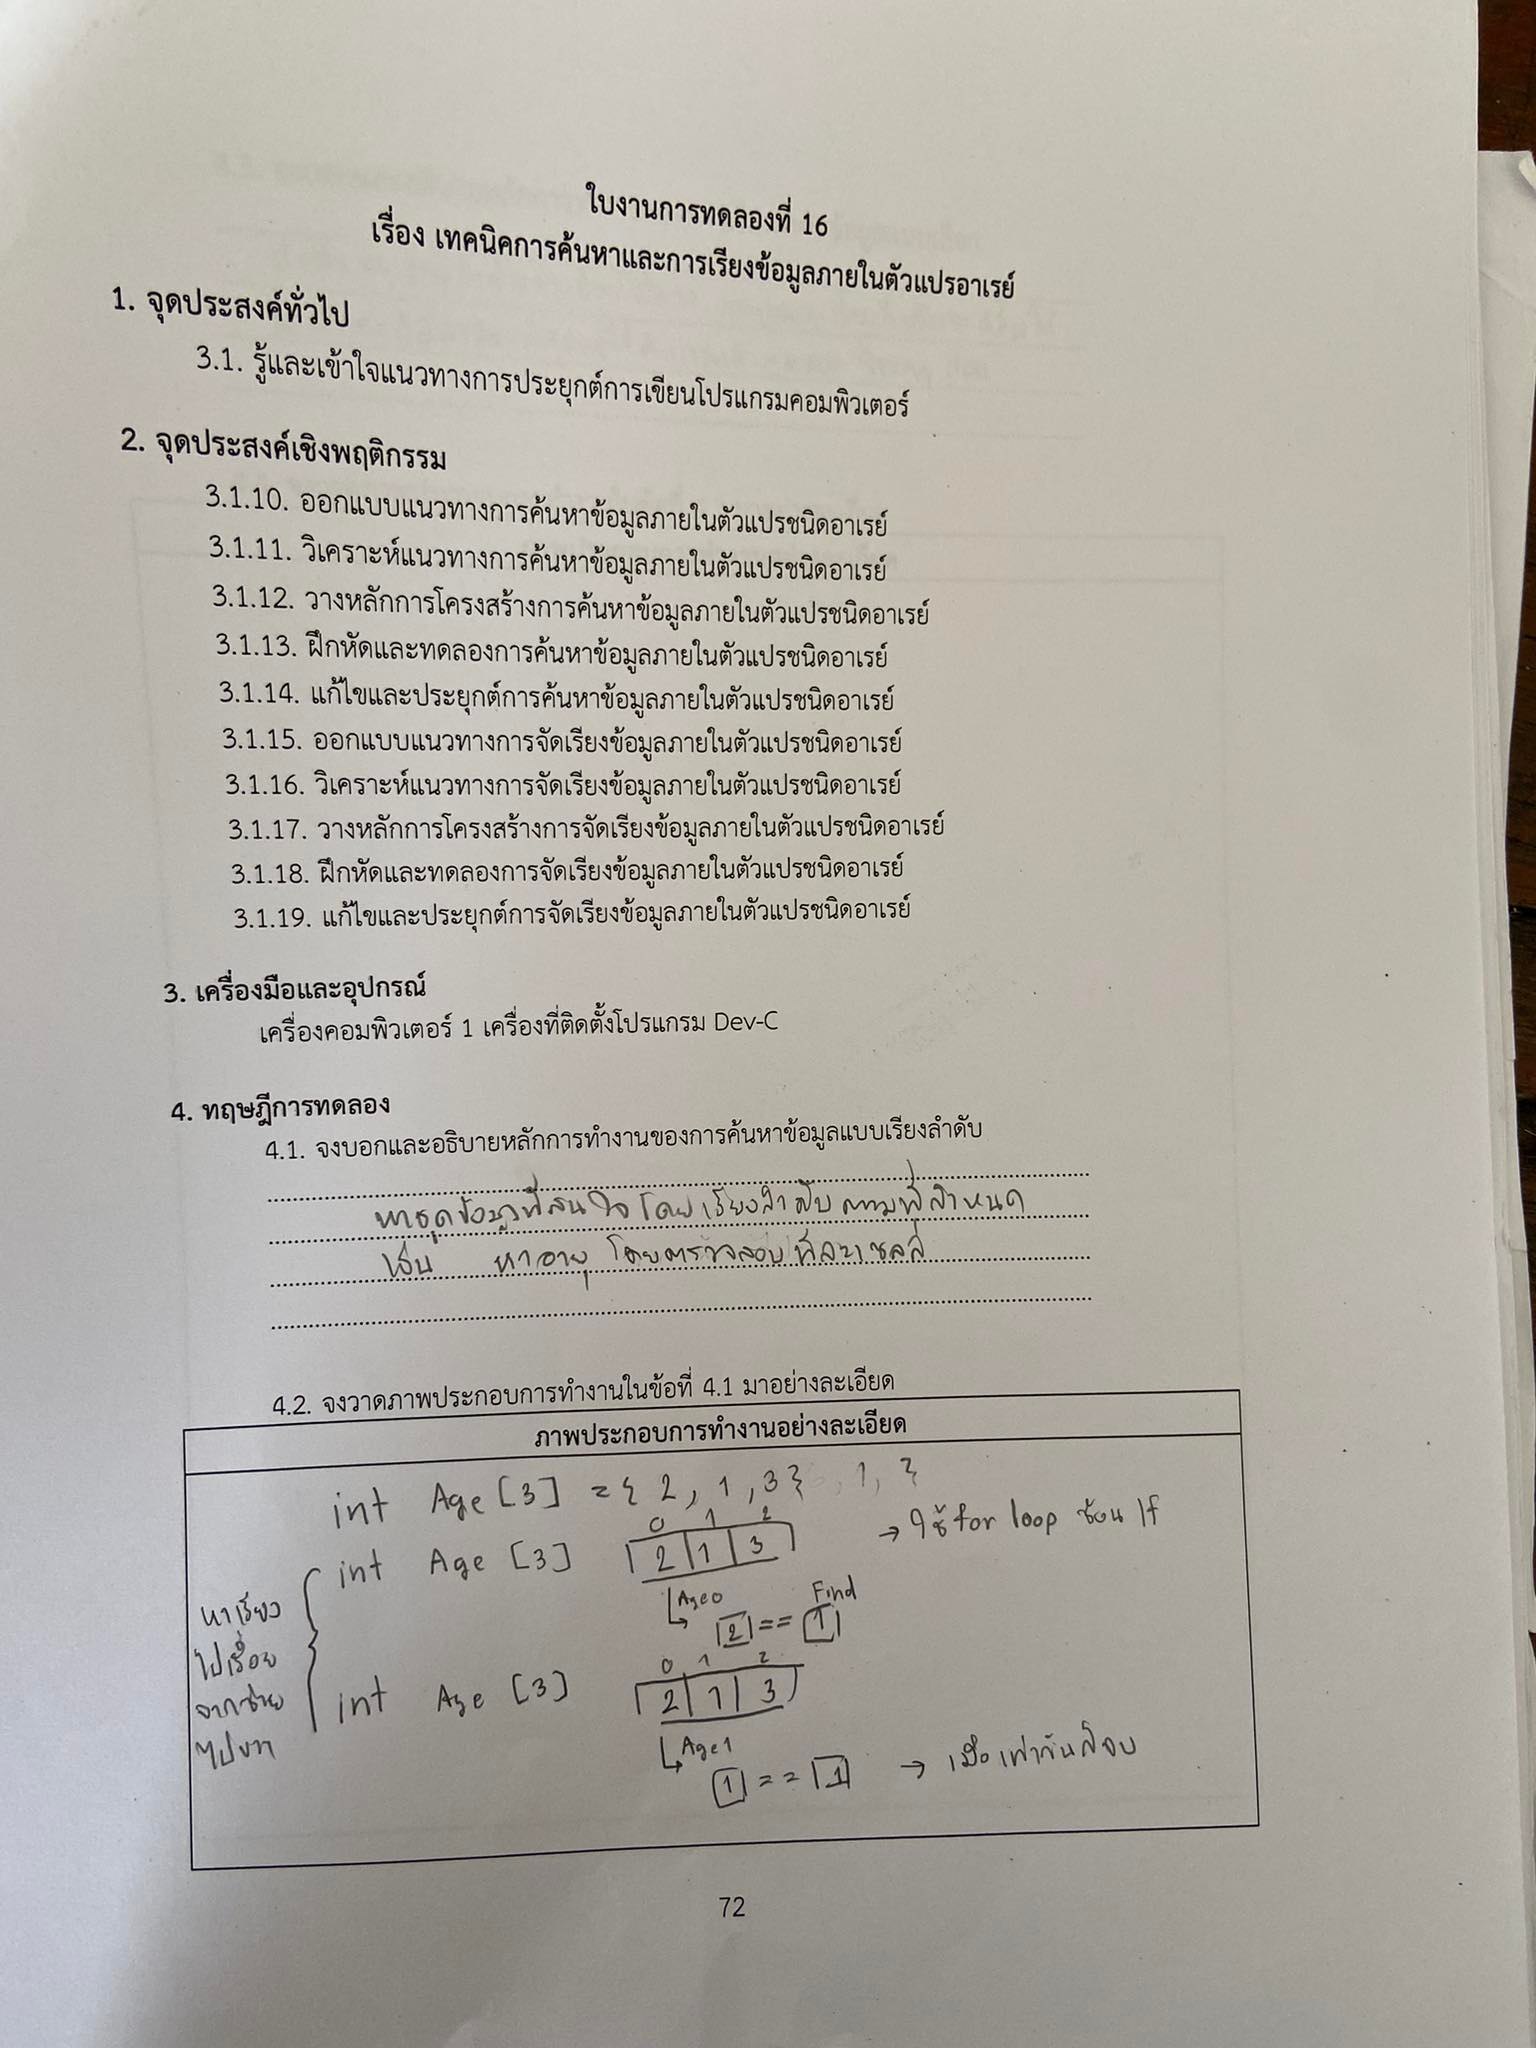 ใบงานการทดลองที่ 16
เรื่อง เทคนิคการค้นหาและการเรียงข้อมูลภายในตัวแปรอาเรย์
1. จุดประสงค์ทั่วไป
3.1. รู้และเข้าใจแนวทางการประยุกต์การเขียนโปรแกรมคอมพิวเตอร์
2. จุดประสงค์เชิงพฤติกรรม
3.1.10. ออกแบบแนวทางการค้นหาข้อมูลภายในตัวแปรชนิดอาเรย์
3.1.11. วิเคราะห์แนวทางการค้นหาข้อมูลภายในตัวแปรชนิดอาเรย์
3.1.12. วางหลักการโครงสร้างการค้นหาข้อมูลภายในตัวแปรชนิดอาเรย์
3.1.13. ฝึกหัดและทดลองการค้นหาข้อมูลภายในตัวแปรชนิดอาเรย์
3.1.14. แก้ไขและประยุกต์การค้นหาข้อมูลภายในตัวแปรชนิดอาเรย์
3.1.15. ออกแบบแนวทางการจัดเรียงข้อมูลภายในตัวแปรชนิดอาเรย์
3.1.16. วิเคราะห์แนวทางการจัดเรียงข้อมูลภายในตัวแปรชนิดอาเรย์
3.1.17. วางหลักการโครงสร้างการจัดเรียงข้อมูลภายในตัวแปรชนิดอาเรย์
3.1.18. ฝึกหัดและทดลองการจัดเรียงข้อมูลภายในตัวแปรชนิดอาเรย์
3.1.19. แก้ไขและประยุกต์การจัดเรียงข้อมูลภายในตัวแปรชนิดอาเรย์
3. เครื่องมือและอุปกรณ์
เครื่องคอมพิวเตอร์ 1 เครื่องที่ติดตั้งโปรแกรม Dev-C
4. ทฤษฎีการทดลอง
4.1. จงบอกและอธิบายหลักการทำงานของการค้นหาข้อมูลแบบเรียงลำดับ
หาชุดข้อมูลที่สนใจ โดยเรียงลำดับตามที่กำหนด
เช่น หาอายุ โดยตรวจสอบทีละเซลล์
4.2. จงวาดภาพประกอบการทำงานในข้อที่ 4.1 มาอย่างละเอียด
ภาพประกอบการทำงานอย่างละเอียด
int Age [3] = { 2 , 1 , 3 }
0 1 2
int Age [3] 2 1 3 → ใช้ for loop ซ้อน If
Age0 Find
2 == 1
หาเรียง
ไปเรื่อย
จากซ้าย
ไปขวา
0 1 2
int Age [3] 2 1 3
Age1
1 == 1 → เมื่อเท่ากันก็จบ
72